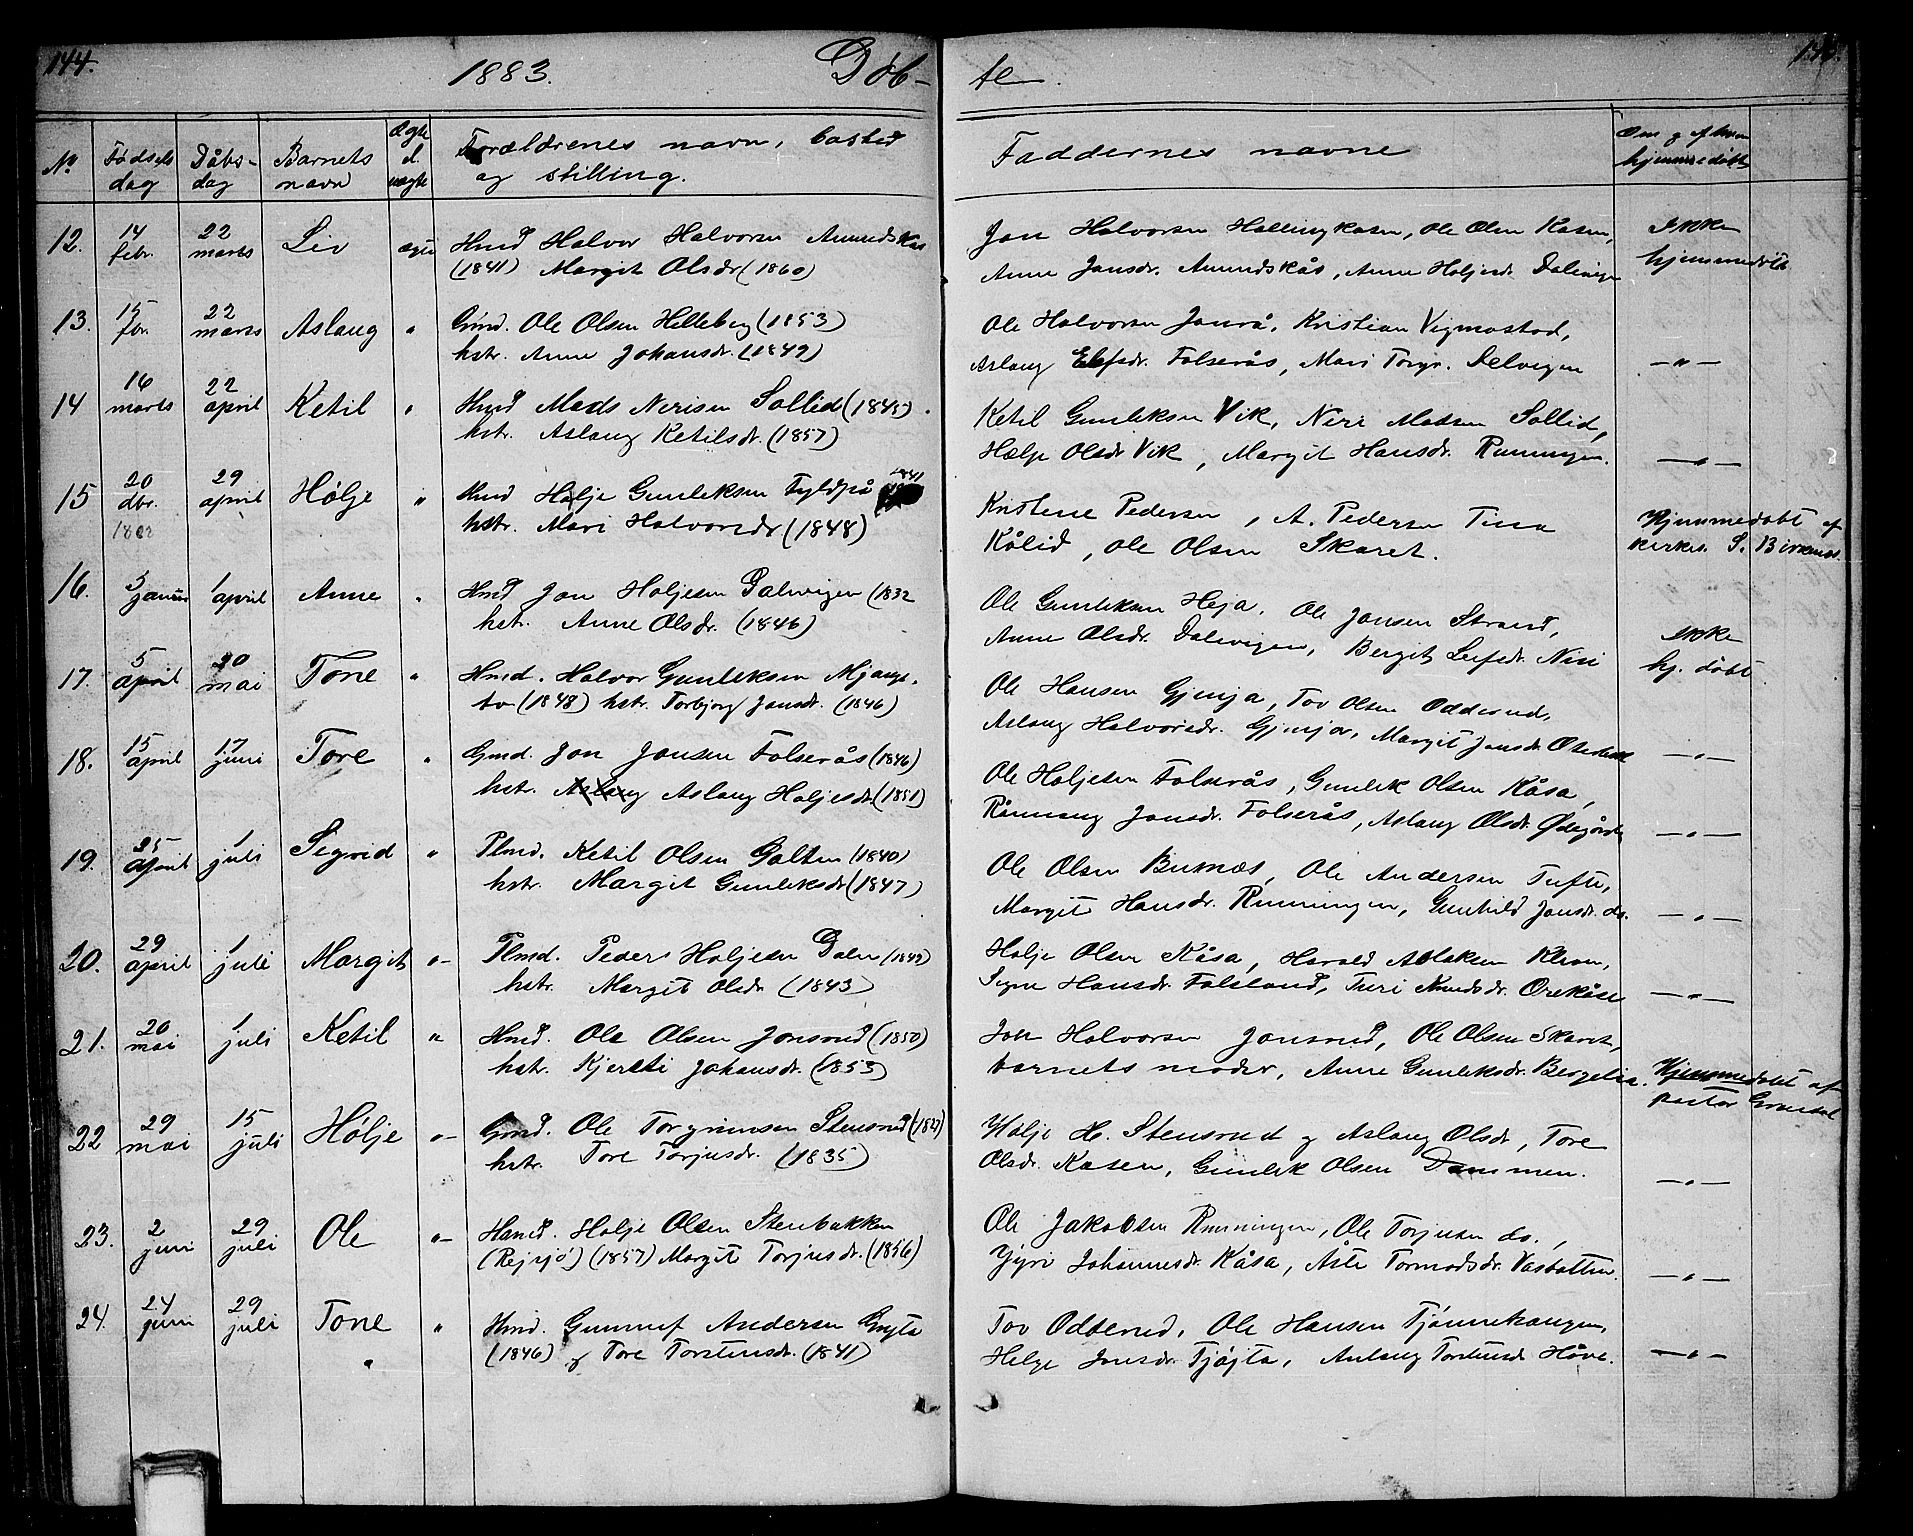 144.
1883.
Døb-
te.
145.
No
Fødsels dag
Dåbs- dag
Barnets navn
Ægte el. uægte
Forældrenes navn, bosted og stilling.
Faddernes navne
Om og af hvem hjemmedøbt
12. 14 febr. 22 marts Liv ægte Hmd Halvor Halvorsen Amundskås
(1841) Margit Olsdr (1860)
Jon Halvorsen Hallingkåsen, Ole Olsen Kasen,
Anne Jansdr. Amundskås, Anne Holjesdr. Dalevigen
Ikke hjemmedøbt
13. 15 fbr. 22 marts Aslaug " Gmd. Ole Olsen Helleberg (1853)
hstr. Anne Johansdr. (1849)
Ole Halvorsen Jonrå, Kristian Vigmostad,
Aslaug Elefsdr. Folserås, Mari Torgr. Selvigen
— " —
14 16 marts 22 april Ketil " Hmd Mads Nerisen Sollid (1845)
hstr. Aslaug Ketilsdr. (1857)
Ketil Gunleksen Vik, Neri Madsen Sollid,
Hælje Olsdr Vik, Margit Hansdr. Runningen.
— " —
15 20 dbr. 1882 29 april Hølje " Hmd Holje Gunleksen Fyldpå 1841
hstr. Mari Halvorsdr (1848)
Kristene Pedersen, A. Pedersen Tina
Kålid, Ole Olsen Skaret.
Hjemmedøbt af
kirkes. S. Birkenes.
16. 3 januar 1 april Anne " Hmd Jon Holjesen Dalevigen (1832
hstr. Anne Olsdr. (1846)
Ole Gunleksen Heja, Ole Jonsen Strand,
Anne Olsdr. Dalevigen, Bergit Leifsdr. Nisi
Ikke
hj. døbt
17. 5 april 20 mai Tone " Hmd. Halvor Gunleksen Mjangs-
tv (1848) hstr. Torbjorg Jonsdr. (1846)
Ole Hansen Gjevja, Tov Olsen Odderud,
Aslaug Halvorsdr. Gjevja, Margit Jonsdr
— " —
18. 15 april 17 juni Tore " Gmd. Jon Jonsen Folserås (1846)
hstr. Aslaug Aslaug Holjesdr. (1851)
Ole Holjesen Folserås, Gunlek Olsen Kåsa,
Rånnaug Jonsdr. Folserås, Aslaug Olsdr. Ødegården
— " —
19. 25 april 1 juli Sigrid " Plmd. Ketil Olsen Galten (1840)
hstr. Margit Gunleksdr (1847)
Ole Olsen Busnæs, Ole Andersen Tufte,
Margit Hansdr. Runningen, Gunhild Jonsdr. ds.
— " —
20. 29 april 1 juli Margit "- Plmd. Peder Holjesen Dalen (1849)
hstr. Margit Olsdr (1843)
Holje Olsen Kåsa, Harald Aslaksen Kleven,
Signe Hansdr. Folseland, Turi Knudsdr. Orekåsa
— " —
21. 20 mai 1 juli Ketil " Hmd. Ole Olsen Jonsrud (1850)
hstr. Kjersti Johansdr. (1853)
Jon Halvorsen Jonsrud, Ole Olsen Skaret,
barnets moder, Anne Gunleksdr. Bergelia.
Hjemmedøbt af
pastor
22 29 mai 15 juli Hølje "- Gmd. Ole Torgrimsen Stensrud (1827)
hstr. Tore Torjusdr. (1835)
Holje H. Stensrud og Aslaug Olsdr, Tore
Olsdr. Kasen, Gunlek Olsen Dammen.
— " —
23. 2 juni 29 juli Ole "- Hmd. Holje Olsen Stenbakken
(Rejsjø) (1857) Margit Torjusdr. (1856)
Ole Jakobsen Runningen, Ole Torjusen ds.,
Gyri Johannesdr. Kåsa, Åste Tormodsdr. Vasbotten.
— " —
24. 24 juni 29 juli Tone " Hmd. Gunnuf Andersen Gryta
(1846) og Tore Torstensdr. (1841)
Tov Odberud, Ole Hansen Tjønnehaugen,
Helge Jonsdr. Tjøjta, Aslaug Torstensdr Håve.
— " —